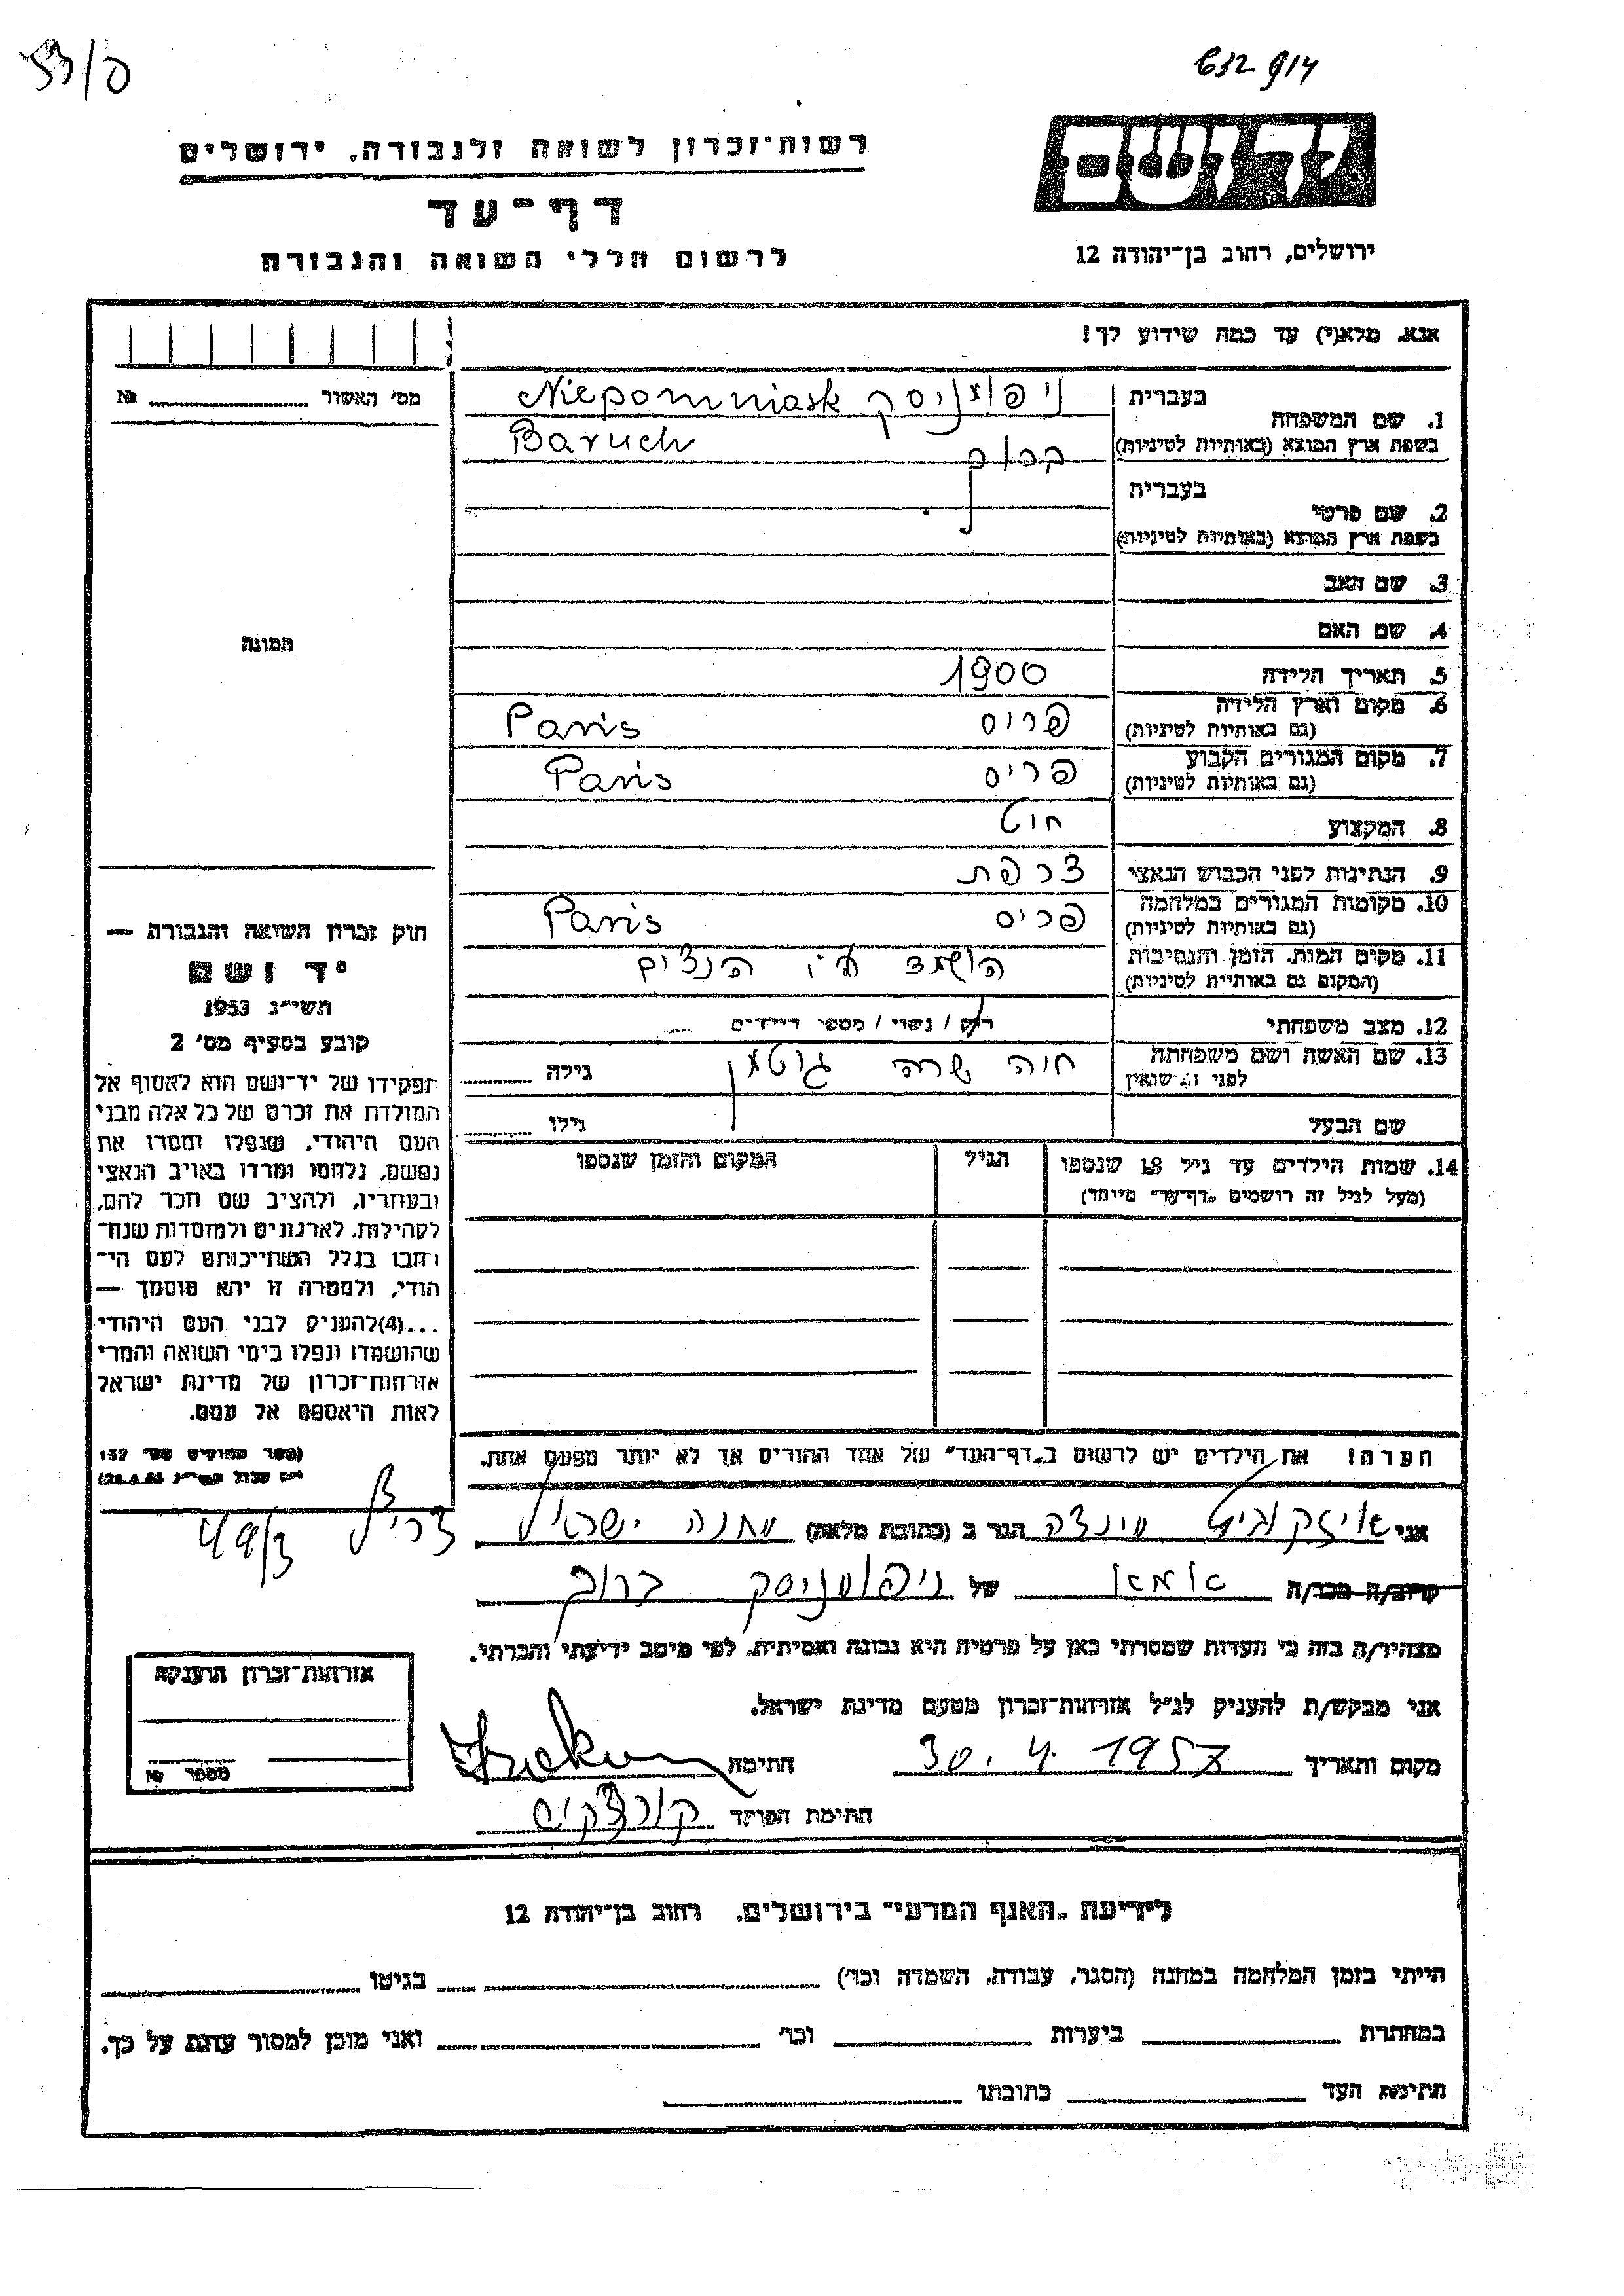 53/0
632 914
רשות־זכרון לשואה ולגבורה, ירושלים
דף־עד
לרשום חללי השואה והגבורה
יד ושם
ירושלים, רחוב בן־יהודה 12
אנא, מלא(י) עד כמה שידוע לך!
מס׳ האשור № 
1. שם המשפחה
בעברית ניפומניסק Niepomniask
בשפת ארץ המוצא (באותיות לטיניות)
ברוך Baruch
2. שם פרטי
בעברית
בשפת ארץ המוצא (באותיות לטיניות)
3. שם האב
4. שם האם
5. תאריך הלידה 1900
6. מקום וארץ הלידה פריס Paris
(גם באותיות לטיניות)
7. מקום המגורים הקבוע פריס Paris
(גם באותיות לטיניות)
8. המקצוע חיט
9. הנתינות לפני הכבוש הנאצי צרפת
10. מקומות המגורים במלחמה פריס Paris
(גם באותיות לטיניות)
11. מקום המות, הזמן והנסיבות הושמד ע״י הנצים
(המקום גם באותיות לטיניות)
12. מצב משפחתי רוק / נשוי / מספר הילדים
13. שם האשה ושם משפחתה חוה שרה גוטמן גילה
לפני הנישואין
שם הבעל גילו
14. שמות הילדים עד גיל 18 שנספו הגיל המקום והזמן שנספו
(מעל לגיל זה רושמים „דף־עד״ מיוחד)
הערה! את הילדים יש לרשום ב„דף־העד״ של אחד ההורים אך לא יותר מפעם אחת.
תמונה
חוק זכרון השואה והגבורה —
יד ושם
תשי״ג 1953
קובע בסעיף מס׳ 2
תפקידו של יד־ושם הוא לאסוף אל
המולדת את זכרם של כל אלה מבני
העם היהודי, שנפלו ומסרו את
נפשם, נלחמו ומרדו באויב הנאצי
ובעוזריו, ולהציב שם וזכר להם,
לקהילות, לארגונים ולמוסדות שנח־
רבו בגלל השתייכותם לעם הי־
הודי, ולמטרה זו יהא מוסמך —
...(4) להעניק לבני העם היהודי
שהושמדו ונפלו בימי השואה והמרי
אזרחות־זכרון של מדינת ישראל
לאות היאספם אל עמם.
(ספר החוקים מס׳ 132
אני איזקוביץ מינדה הגר ב (כתובת מלאה) מחנה ישראל צריף 49/3
קרוב/ה מכר/ה אמא של ניפומניסק ברוך
מצהיר/ה בזה כי העדות שמסרתי כאן על פרטיה היא נכונה ואמיתית, לפי מיטב ידיעתי והכרתי.
אני מבקש/ת להעניק לנ״ל אזרחות־זכרון מטעם מדינת ישראל.
מקום ותאריך 30. 4. 1957 חתימה
חתימת הפוקד
אזרחות־זכרון הוענקה
מספר №
לידיעת „האגף המדעי״ בירושלים, רחוב בן־יהודה 12
הייתי בזמן המלחמה במחנה (הסגר, עבודה, השמדה וכו׳) בגיטו
במחתרת ביערות וכו׳ ואני מוכן למסור עדות על כך.
חתימת העד כתובתו